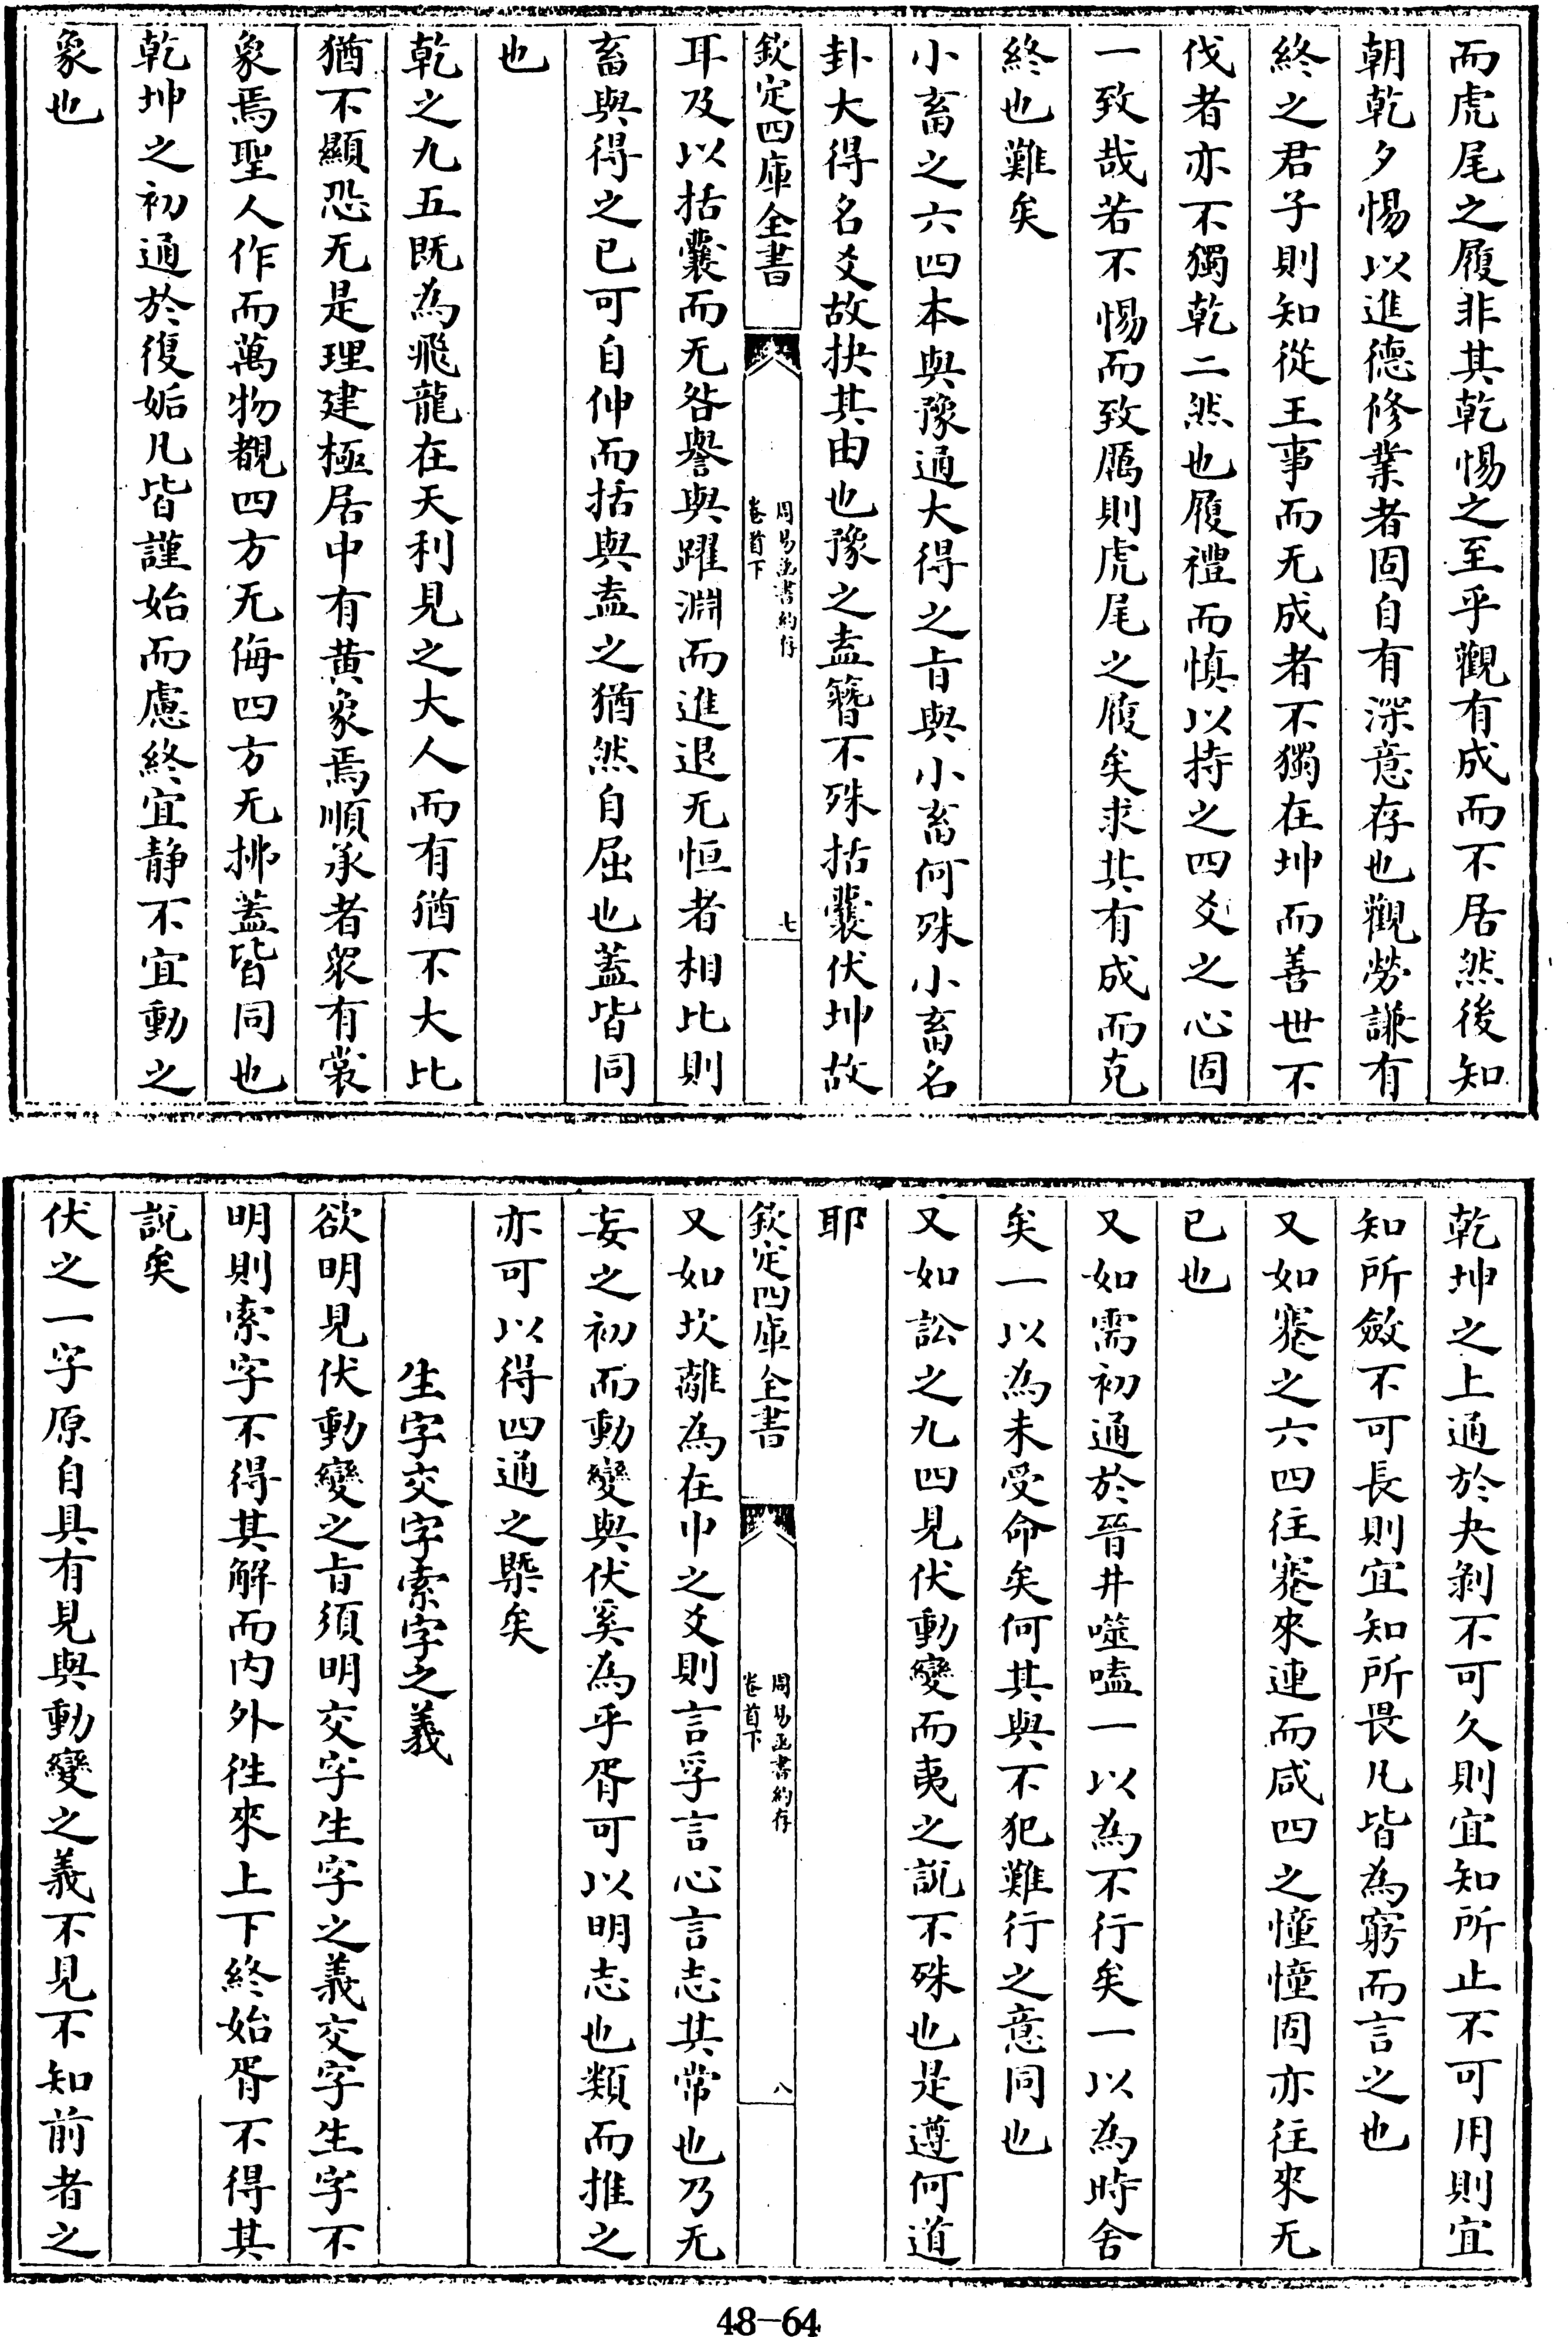 而虎尾之履非其乾惕之至乎觀有成而不居然後知
朝乾夕惕以進德修業者固自有深意存也觀勞謙有
終之君子則知從王事而无成者不獨在坤而善世不
伐者亦不獨乾二然也履禮而慎以持之四爻之心固
一致哉若不惕而致厲則虎尾之履矣求其有成而克
終也難矣
小畜之六四本與豫通大得之旨與小畜何殊小畜名
卦大得名爻故抉其由也豫之盍簪不殊括囊伏坤故
欽定四庫全書
周易函書約存
卷首下
七
耳及以括囊而无咎譽與躍淵而進退无恒者相比則
畜與得之已可自伸而括與盍之猶然自屈也蓋皆同
也
乾之九五既為飛龍在天利見之大人而有猶不大比
猶不顯恐无是理建極居中有黄象焉順承者眾有裳
象焉聖人作而萬物覩四方无侮四方无拂蓋皆同也
乾坤之初通於復姤凡皆謹始而慮終宜静不宜動之
象也
乾坤之上通於夬剝不可久則宜知所止不可用則宜
知所斂不可長則宜知所畏凡皆為窮而言之也
又如蹇之六四往蹇來連而咸四之憧憧固亦往來无
已也
又如需初通於晉井噬嗑一以為不行矣一以為時舍
矣一以為未受命矣何其與不犯難行之意同也
又如訟之九四見伏動變而夷之說不殊也是遵何道
耶
欽定四庫全書
周易函書約存
卷首下
八
又如坎離為在中之爻則言孚言心言志其常也乃无
妄之初而動變與伏奚為乎胥可以明志也類而推之
亦可以得四通之槩矣
生字交字索字之義
欲明見伏動變之旨須明交字生字之義交字生字不
明則索字不得其解而内外徃來上下終始胥不得其
說矣
伏之一字原自具有見與動變之義不見不知前者之
48-64